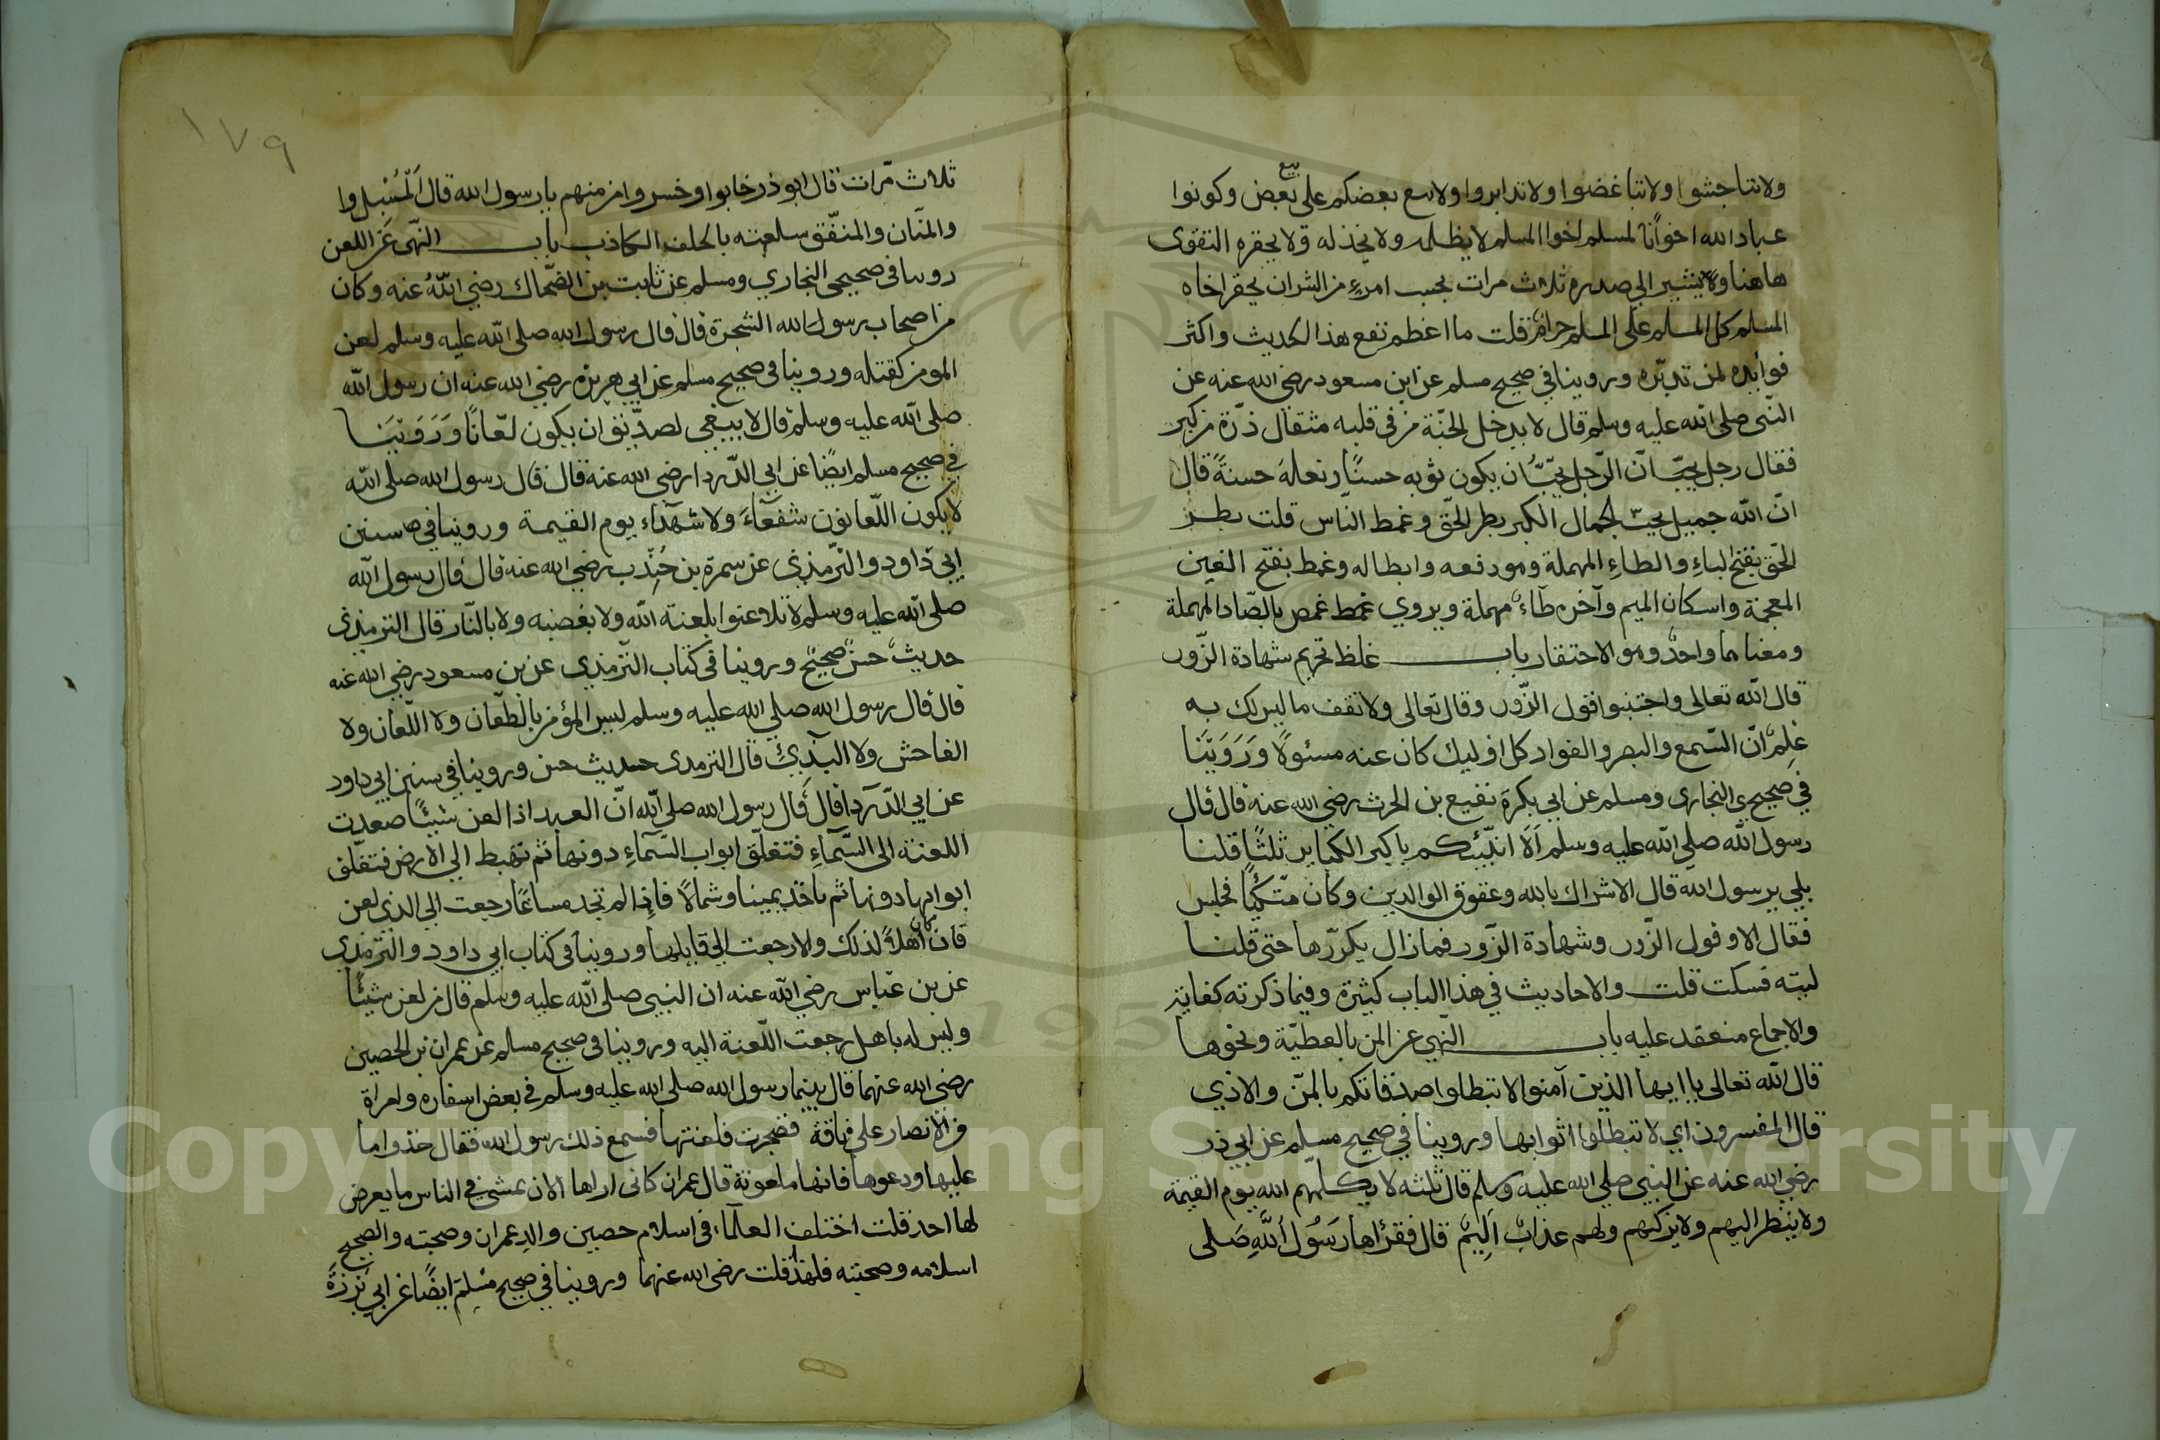 ولا تناجشوا ولا تباغضوا ولا تدابروا ولا يبع بعضكم على بيع بعض وكونوا
عباد الله اخوانًا المسلم اخوا المسلم لا يظلمه ولا يخذله ولا يحقره التقوى
هاهنا ويشير الى صدره ثلاث مرات بحسب امرءٍ من الشر ان يحقر اخاه
المسلم كل المسلم على المسلم حرام قلت ما اعظم نفع هذا الحديث واكثر
فوائده لمن تدبّره وروينا في صحيح مسلم عن ابن مسعود رضي الله عنه عن
النّبي صلى الله عليه وسلم قال لا يدخل الجنّة من في قلبه مثقال ذرّة من كبر
فقال رجل انّ الرّجل يحبّ ان يكون ثوبه حسنًا ونعله حسنةً قال
انّ الله جميل يحبّ الجمال الكبر بطر الحقّ وغمط النّاس قلت بطر
الحقّ بفتح الباء والطاء المهملة وهو دفعه وابطاله وغمط بفتح الغين
المعجمة واسكان الميم وآخره طاء مهملة ويروي غمط غمص بالصّاد المهملة
ومعناهما واحدٌ وهو الاحتقار باب غلظ تحريم شهادة الزّور
قال الله تعالى واجتنبوا قول الزّور وقال تعالى ولا تقف ما ليس لك به
علم انّ السّمع والبصر والفواد كل اوليك كان عنه مسئولًا وَرَوَيْنَا
في صحيحي البخارى ومسلم عن ابي بكرة نفيع بن الحرث رضي الله عنه قال قال
رسول الله صلى الله عليه وسلم اَلَا انبّئكم باكبر الكبائر ثلثًا قلنا
بلي يرسول الله قال الاشراك بالله وعقوق الوالدين وكان متّكئًا فجلس
فقال الا وقول الزّور وشهادة الزّور فما زال يكررّها حتى قلنا
ليته فسكت قلت والاحاديث في هذا الباب كثيرة وفيما ذكرته كفاية
والاجماع منعقد عليه باب النّهي عن المن بالعطيّة ونحوها
قال الله تعالى يا ايها الذين آمنوا لا تبطلوا صدقاتكم بالمنّ والاذي
قال المفسرون اي لا تبطلوا اثوابها وروينا في صحيح مسلم عن ابي ذر
رضي الله عنه عن النبي صلى الله عليه وسلم قال ثلثه لا يكلّمهم الله يوم القيمة
ولا ينظر اليهم ولا يزكيهم ولهم عذابٌ اَلِيمٌ قال فقرأها رَسُول اللهِ صَلى
١٧٩
ثلاث مرّات قال ابو ذر خابوا وخسروا من منهم يا رسول الله قال اَلْمُسْبِل وا
والمنّان والمنفّق سلعته بالحلف الكاذب باب النّهى عَن اللعن
روينا فى صحيحي البخاري ومسلم عن ثابت بن الضّحاك رضي اللهُ عنه وكان
من اصحاب رسول الله الشجرة قال قال رسول الله صلى الله عليه وسلم لعن
المومن كقتله وروينا فى صحيح مسلم عن ابي هريره رضي الله عنه ان رسول الله
صلى الله عليه وسلم قال لا ينبغي لصدّيق ان يكون لعّانًا وَرَوَيْنَا
في صحيح مسلم ايضًا عن ابي الدّردا رضي الله عنه قال قال رسول الله صلى الله
لا يكون اللّعانون شفعآء ولا شهدآء يوم القيمة وروينا في سنن
ابي داود والتّرمذي عن سمرة بن جُنْدُب رضي الله عنه قال قال رسول الله
صلى الله عليه وسلم لا تلاعنوا بلعنة الله ولا بغضبه ولا بالنّار قال الترمذي
حديثٌ حسنٌ صحيحٌ وروينا فى كتاب التّرمذي عن بن مسعود رضي الله عنه
قال قال رسول الله صلى الله عليه وسلم ليس المؤمن بالطّعّان ولا اللّعان ولا
الفاحش ولا البذيّ قال الترمذى حديث حسن وروينا في سنن ابي داود
عن ابي الدّردا قال قال رسول الله صلى الله انّ العبد اذا لعن شيئًا صعدت
اللعنة الى السّمآءِ فتغلّق ابواب السّمآءِ دونها ثم تهبط الي الارض فتغلّق
ابوابها دونها ثم تاخذ يمينا وشمالًا فاذا لم تجد مساغًا رجعت الي الذي لعن
فان كان اهلًا لذلك والا رجعت الي قايلها وروينا فى كتاب ابي داود والترمذي
عن بن عبّاس رضي الله عنه ان النبي صلى الله عليه وسلم قال من لعن شيئًا
وليس له باهل رجعت اللّعنة اليه وروينا فى صحيح مسلم عن عمران بن الحصين
رضي الله عنهما قال بينما رسول الله صلى الله عليه وسلم في بعض اسفاره وامراة
من الانصار على ناقة فضجرت فلعنتها فسمع ذلك رسول الله فقال خذوا ما
عليها ودعوها فانها ملعونة قال عمران كانى اراها الان تمشي في الناس ما يعرض
لها احد قلت اختلف العلمآء فى اسلام حصين والد عمران وصحبته والصحيح
اسلامه وصحبته فلهذا قلت رضي الله عنهما وروينا في صحيح مسلم ايضًا عن ابي بَرْزَةَ
Copyright © King Saud University
195